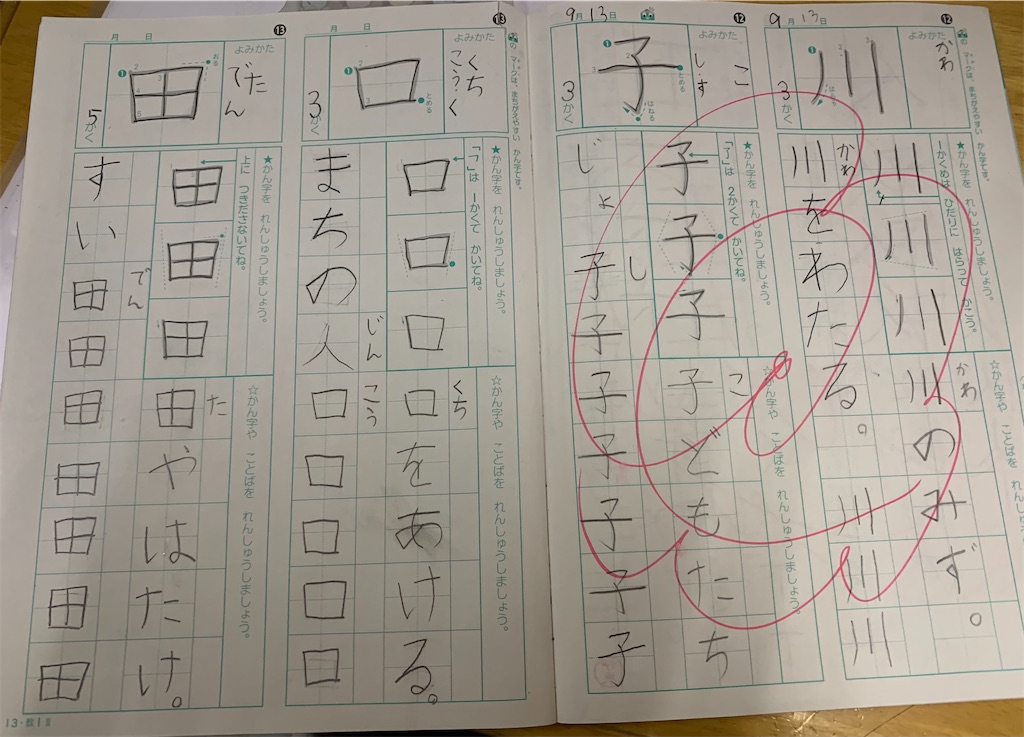 ⑫
9月13日
🏠の マークは、まちがえやすい かん字です。
よみかた
かわ
川
3かく
★かん字を れんしゅうしましょう。
1かくめは ひだりに はらって かこう。
川
川
川
☆かん字や ことばを れんしゅうしましょう。
かわ
川のみず。
川川川
かわ
川をわたる。
⑫
9月13日
よみかた
こ
し・す
子
とめる
はねる
3かく
★かん字を れんしゅうしましょう。
「了」は 2かくで かいてね。
子
子
子
☆かん字や ことばを れんしゅうしましょう。
こ
子どもたち
し
じょ子子子子子子子
⑬
月 日
🏠の マークは、まちがえやすい かん字です。
よみかた
くち
こう・く
口
とめる
3かく
★かん字を れんしゅうしましょう。
「フ」は 1かくで かいてね。
口
口
口
☆かん字や ことばを れんしゅうしましょう。
くち
口をあける。
じん
こう
まちの人口口口口口
⑬
月 日
よみかた
た
でん
田
おる
5かく
★かん字を れんしゅうしましょう。
上に つきださないでね。
田
田
田
☆かん字や ことばを れんしゅうしましょう。
た
田やはたけ。
でん
すい田田田田田田田
13・教1Ⅱ